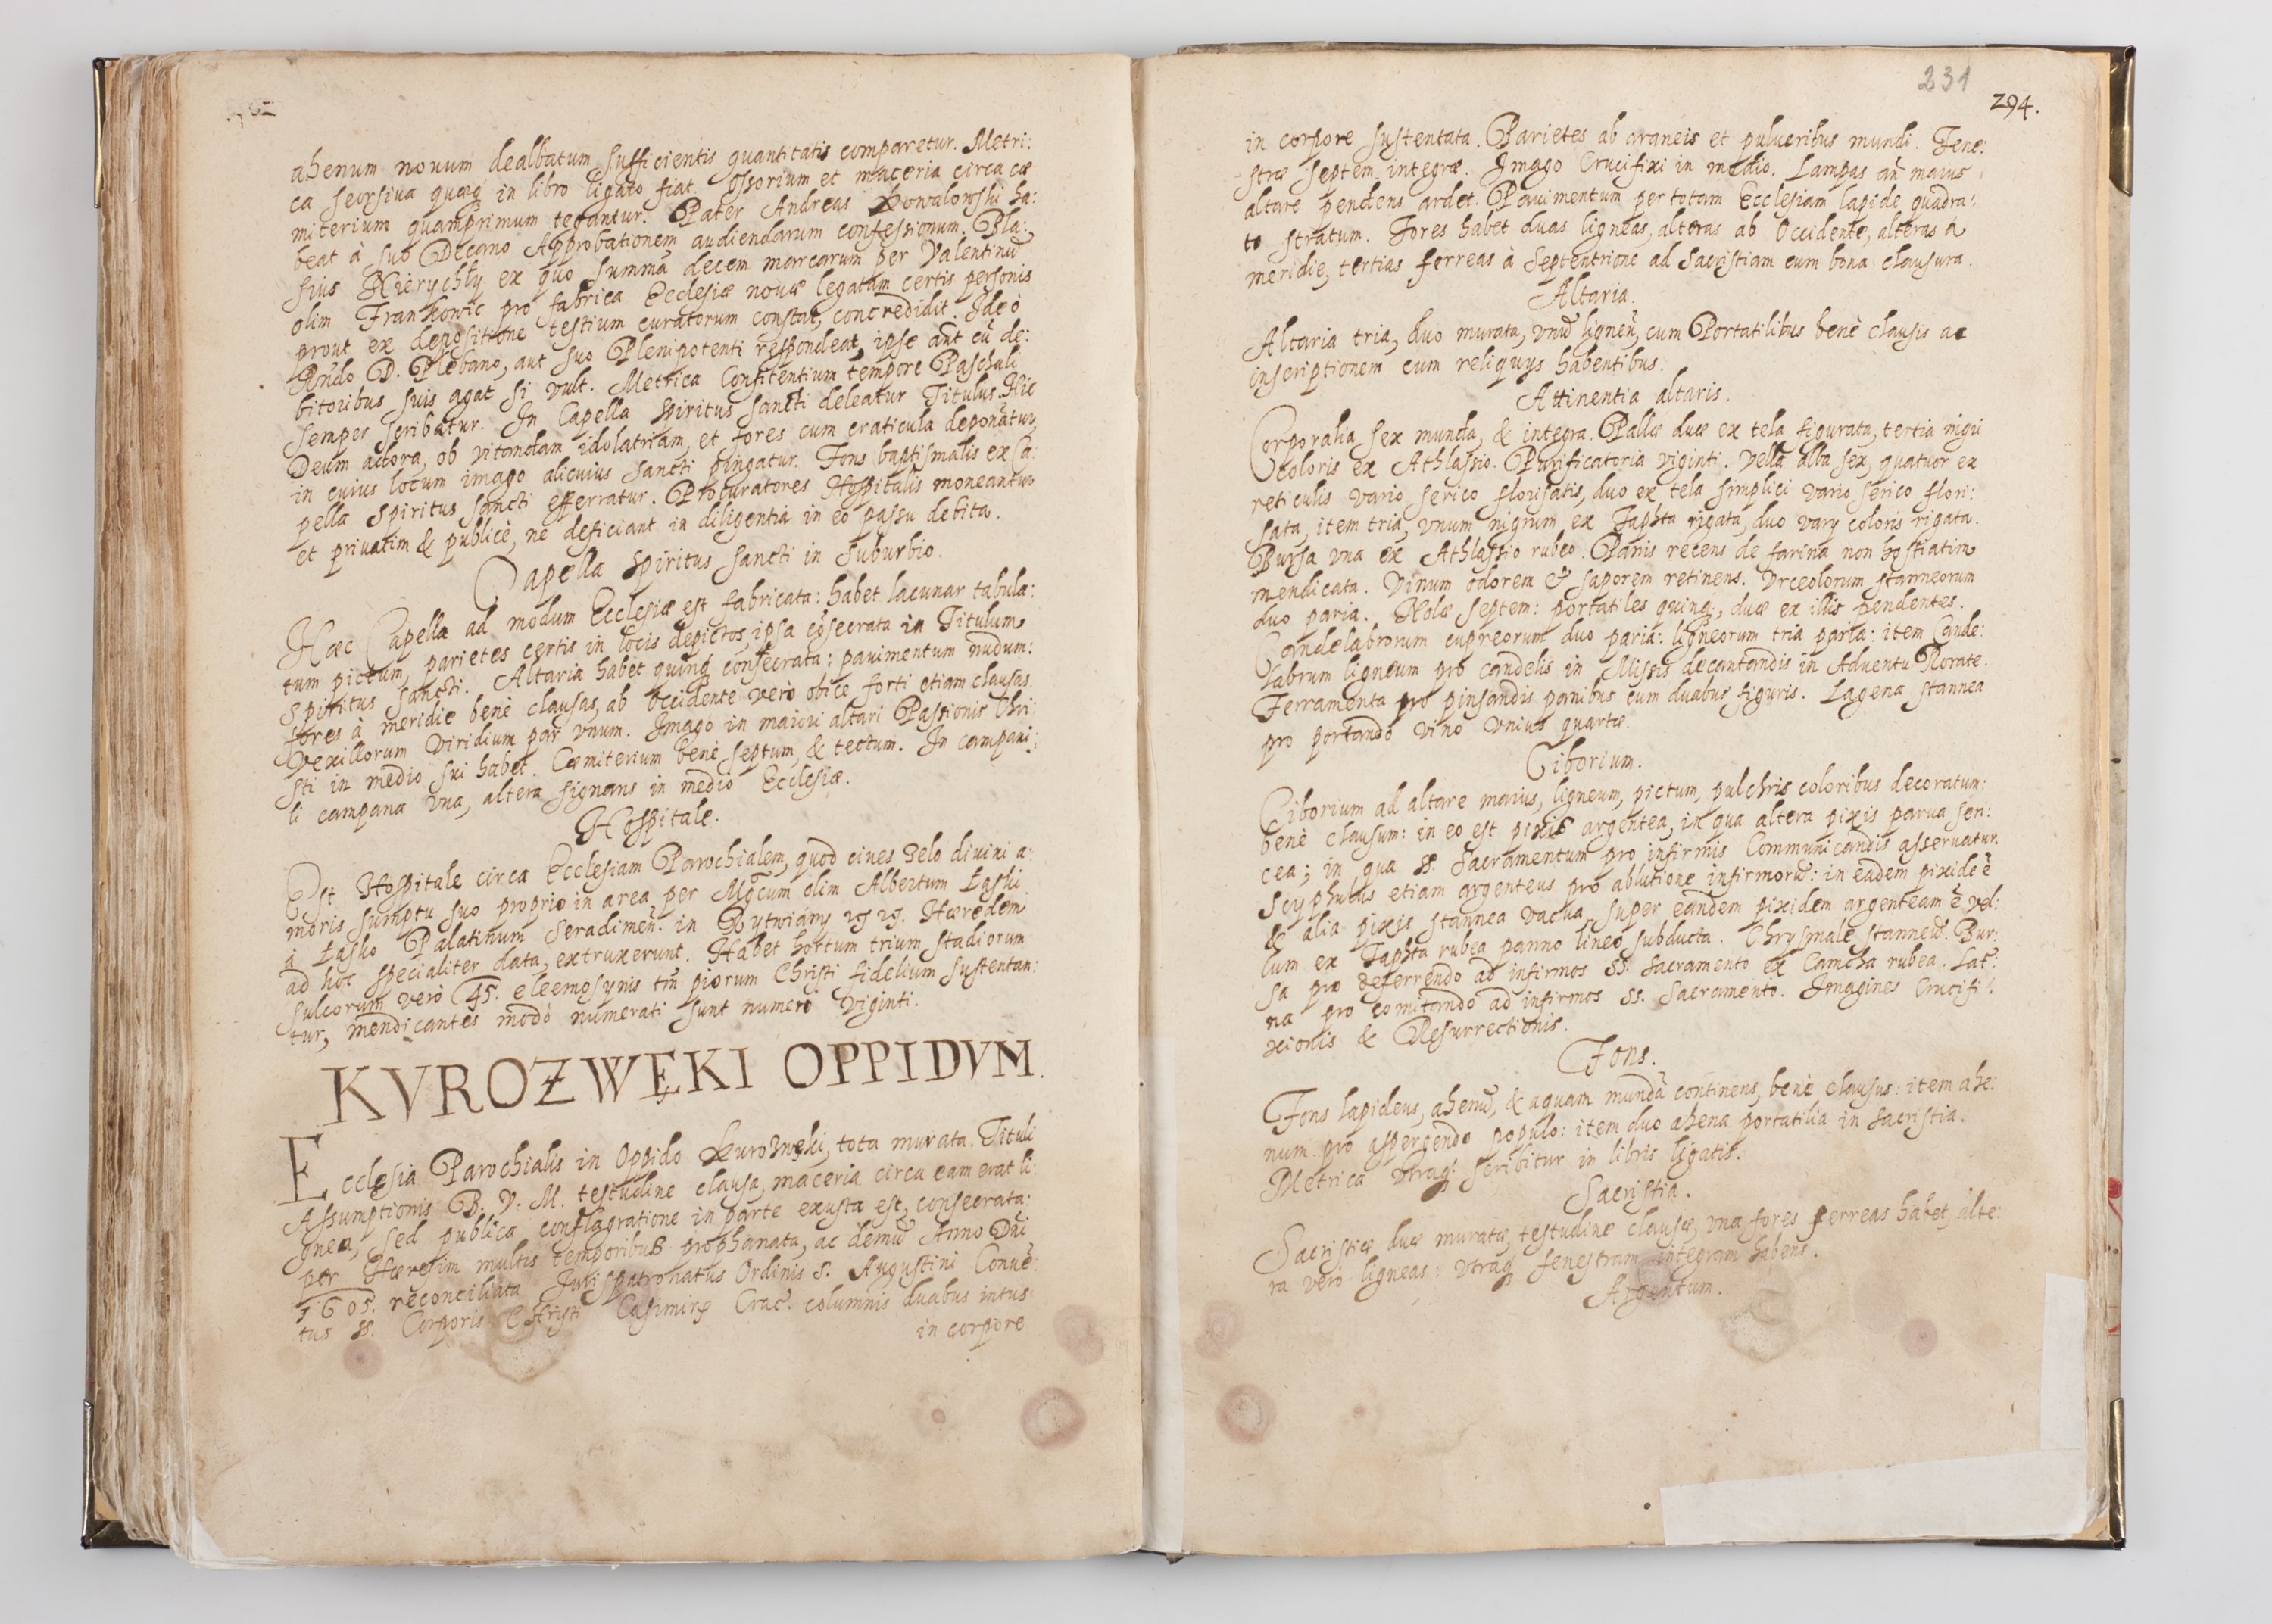 ahenum nouum dealbatum sufficientis quantitatis comparetur. Metri:
ca seorsiua quæq in libro ligato fiat. Ossorium et maceria circa cæ
miterium quamprimum tegantur. Pater Andreas Kowalowski ha:
beat à suo Decano Approbationem audiendarum confessionum. Bla:
sius Rierychły ex quo summā decem marcarum per Valentinū
olim Frankowic pro fabrica Ecclesiæ nouæ legatam certis personis
prout ex depositione testium curatorum constat, concredidit. Ideo
Rndo D. Plebano, aut suo Plenipotenti respondeat, ipse aūt cū de:
bitoribus suis agat si vult. Metrica Confitentium tempore Paschali
semper scribatur. In Capella Spiritus Sancti deleatur Titulus. Hic
Deum adora, ob vitandam idolatriam, et fores cum craticula deponātur,
in cuius locum imago alicuius Sancti pingatur. Fons baptismalis ex Ca:
pella Spiritus Sancti efferratur. Procuratores Hospitalis moneantur
et priuatim & publicè, ne deficiant in diligentia in eo passu debita.
Capella Spiritus Sancti in Suburbio.
Hæc Capella ad modum Ecclesiæ est fabricata: habet lacunar tabula:
tum pictum, parietes certis in locis depictos, ipsa cōsecrata in Titulum
Spiritus Sancti. Altaria habet quinq consecrata: pauimentum nudum:
fores à meridie benè clausas, ab Occidente verò obice forti etiam clausas.
Vexillorum viridium par vnum. Imago in maiori altari Passionis Chri:
sti in medio sui habet. Cæmiterium benè septum, & tectum. In campani:
li campana vna, altera signans in medio Ecclesiæ.
Hospitale.
Est Hospitale circa Ecclesiam Parochialem, quod ciues zelo diuini a:
moris sumptu suo proprio in area per Mgcum olim Albertum Łaski
à Łasko Palatinum Seradimeñ. in Rytwiany Hæredem
ad hoc specialiter data, extruxerunt. Habet hortum trium stadiorum
sulcorum verò 45. eleemosynis tm̄ piorum Christi fidelium sustentan:
tur, mendicantes modò numerati sunt numero viginti.
KVROZWĘKI OPPIDVM.
Ecclesia Parochialis in Oppido Kurozwęki, tota murata. Tituli
Assumptionis B. V. M. testudine clausa, maceria circa eam erat li:
gnea, sed publica conflagratione in parte exusta est, consecrata:
per Hæresim multis temporibus prophanata, ac demū Anno Dni
1605. reconciliata Jurispatronatus Ordinis S. Augustini Conuē:
tus SS. Corporis Christi Casimiriæ Crac. columnis duabus intus
in corpore
231
294.
in corpore sustentata. Parietes ab araneis et pulueribus mundi. Fene:
stræ septem integræ. Imago Crucifixi in medio. Lampas añ maius
altare pendens ardet. Pauimentum per totam Ecclesiam lapide quadra:
to stratum. Fores habet duas ligneas, alteras ab Occidente, alteras à
meridie, tertias ferreas à Septentrione ad Sacristiam cum bona clausura.
Altaria.
Altaria tria, duo murata, vnū ligneū, cum Portatilibus benè clausis ac
inscriptionem cum reliquys habentibus.
Attinentia altaris.
Corporalia sex munda, & integra. Pallæ duæ ex tela figurata, tertia nigri
coloris ex Athlassio. Purificatoria viginti. Vella alba sex, quatuor ex
reticulis vario serico florisatis, duo ex tela simplici vario serico flori:
sata, item tria, vnum nigrum ex Taphta rigata, duo vary coloris rigata.
Bursa vna ex Athlassio rubeo. Panis recens de farina non hostiatim
mendicata. Vinum odorem & saporem retinens. Vrceolorum stanneorum
duo paria. Nolæ septem: portatiles quinq, duæ ex illis pendentes.
Candelabrorum cupreorum duo paria: ligneorum tria paria: item Cande:
labrum ligneum pro candelis in Missis decantandis in Aduentu Rorate.
Ferramenta pro pinsandis panibus cum duabus figuris. Lagena stannea
pro portando vino vnius quartæ.
Ciborium.
Ciborium ad altare maius, ligneum, pictum, pulchris coloribus decoratum:
benè clausum: in eo est pixis argentea, in qua altera pixis parua seri:
cea; in qua SS. Sacramentum pro infirmis Communicandis asseruatur.
Scyphulus etiam argenteus pro ablutione infirmorū: in eadem pixide ē
& alia pixis stannea vacua, super eandem pixidem argenteam ē vel:
lum ex Taphta rubea panno lineo subducta. Chrysmale stanneū. Bur:
sa pro deferrendo ad infirmos SS. Sacramento ex Camcha rubea. Lat:
na pro comitando ad infirmos SS. Sacramento. Imagines Crucifi:
xionis & Resurrectionis.
Fons.
Fons lapideus, ahenū, & aquam mundā continens, benè clausus: item ahe:
num pro aspergendo populo: item duo ahena portatilia in Sacristia.
Metrica vtraq scribitur in libris ligatis.
Sacristia.
Sacristiæ duæ muratæ, testudine clausæ, vna fores ferreas habet, alte:
ra verò ligneas: vtraq fenestram integram habens.
Argentum.